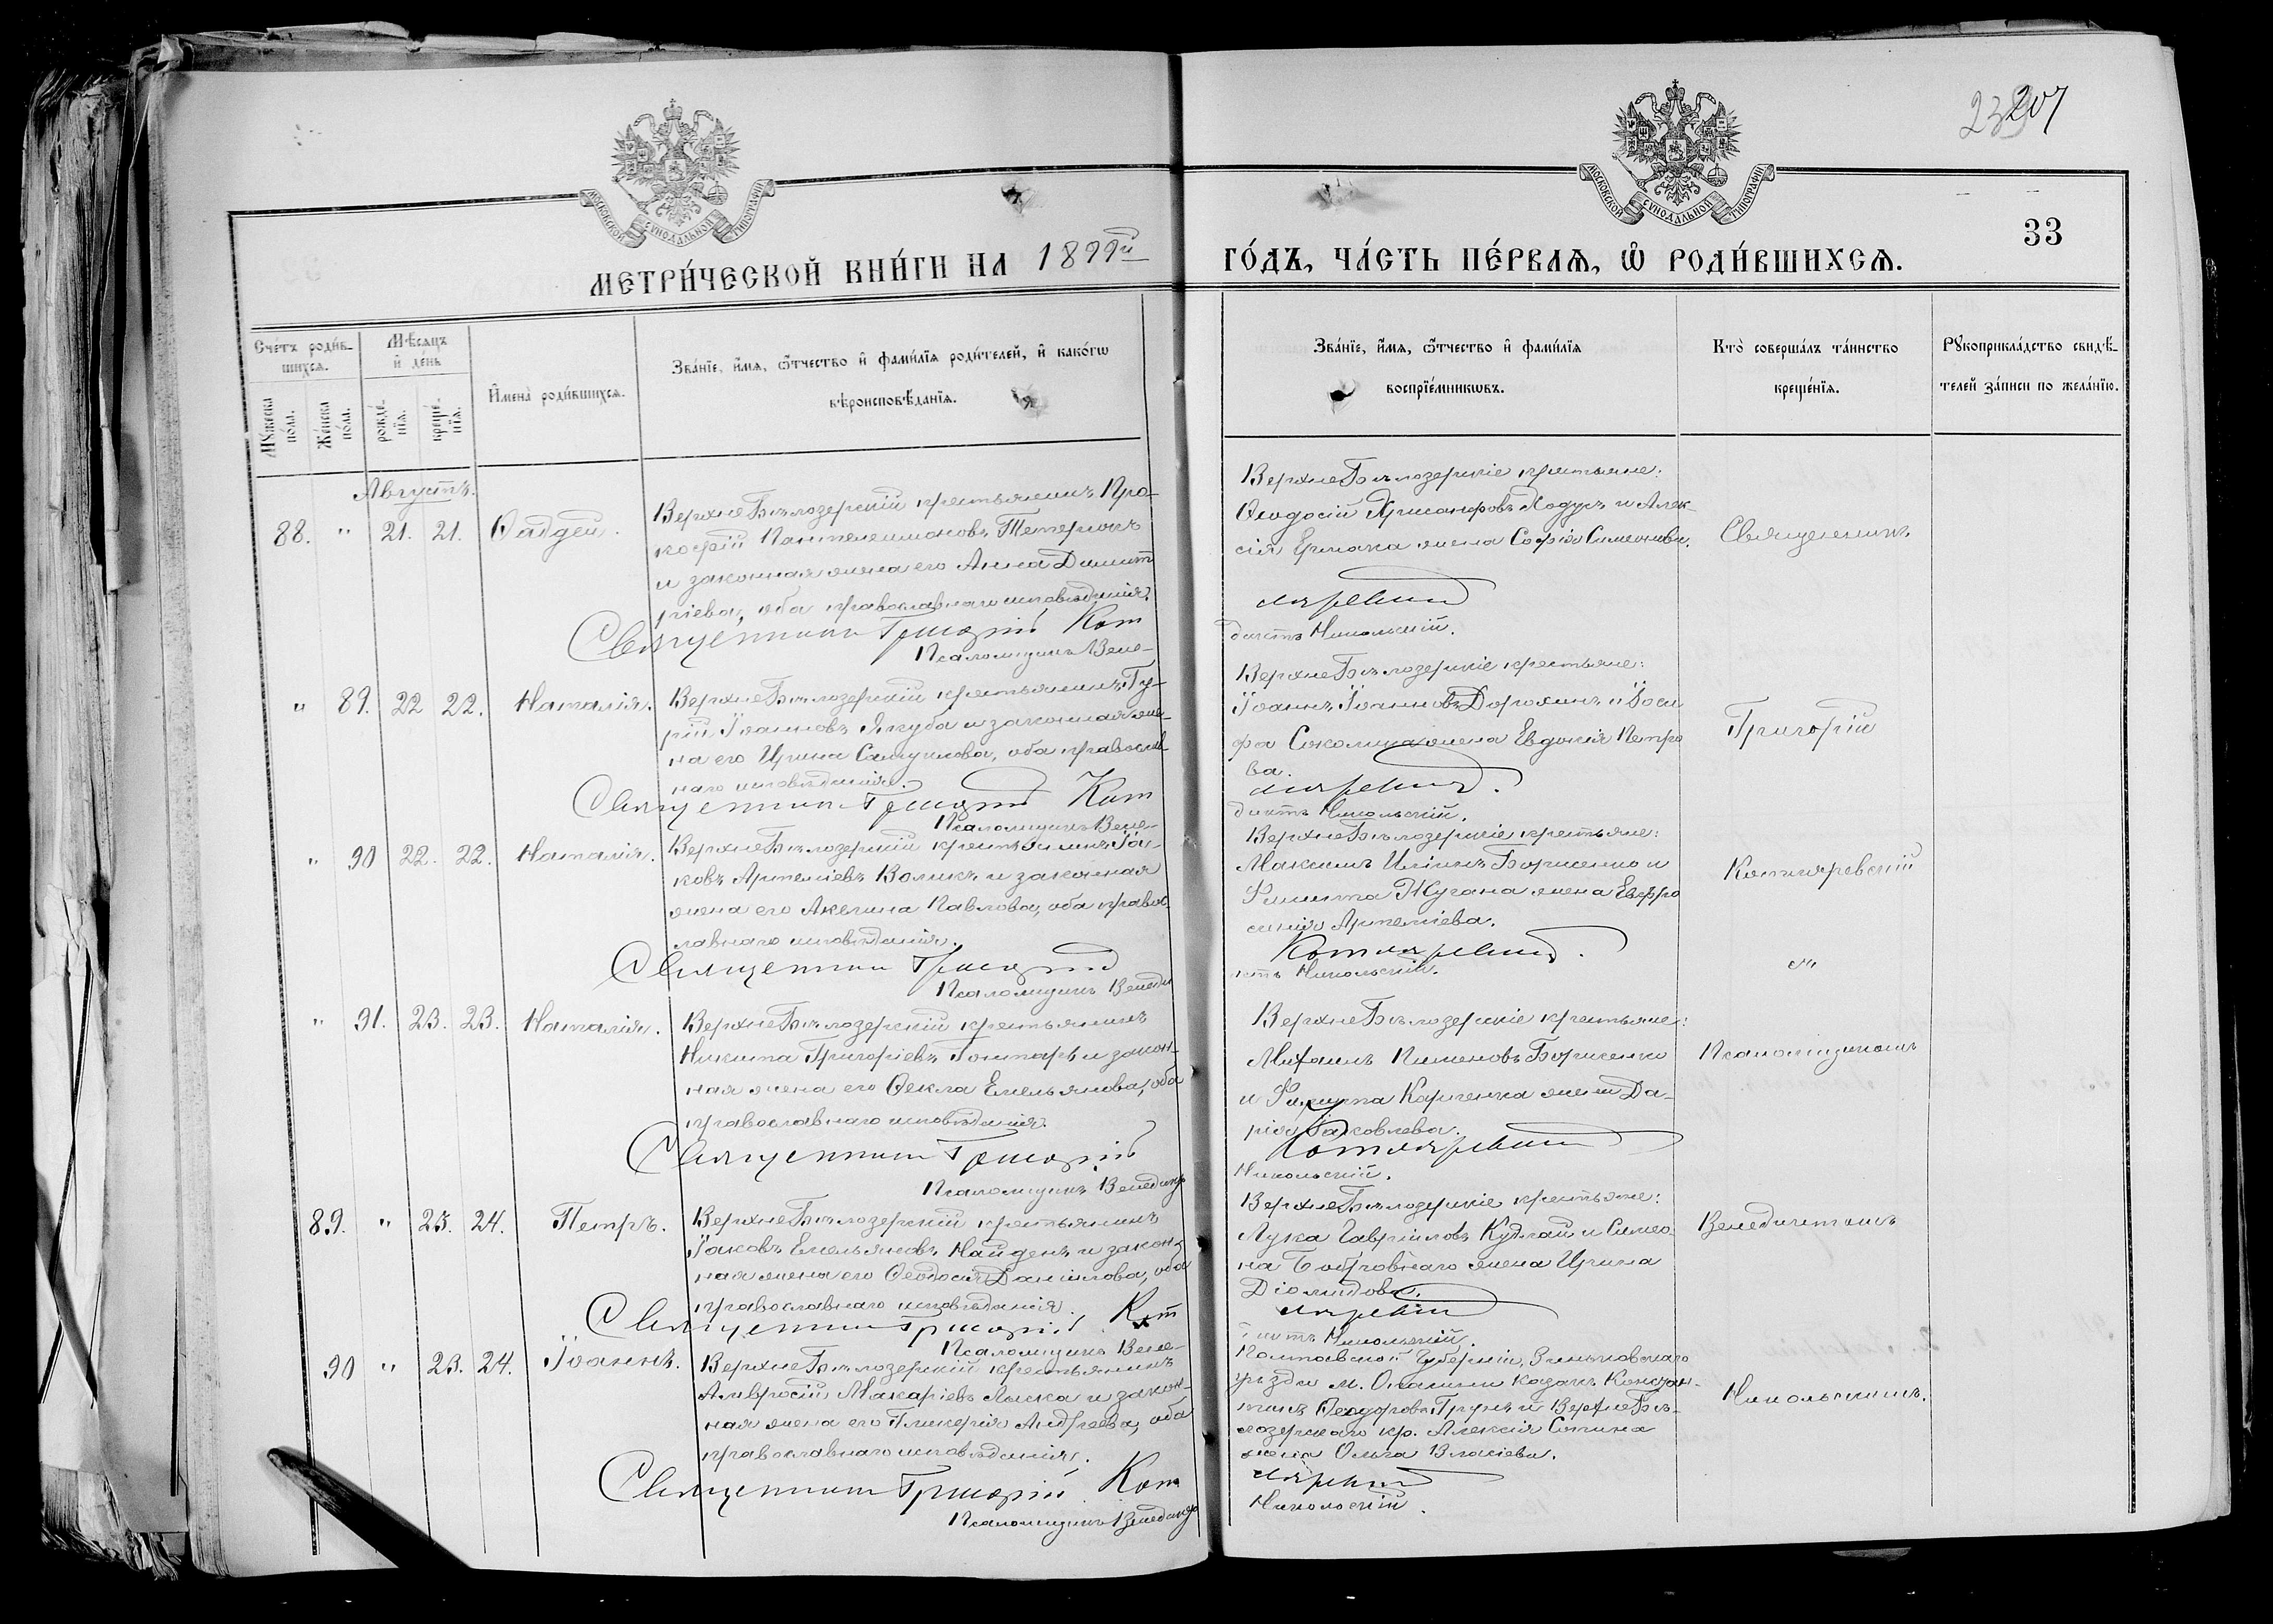 239
207
МОСКОВСКОЙ СѴНОДАЛЬНОЙ ТИПОГРАФІИ
МОСКОВСКОЙ СѴНОДАЛЬНОЙ ТИПОГРАФІИ
33
МЕТРИ́ЧЕСКОЙ КНИ́ГИ НА 1899й
ГО́ДЪ, ЧА́СТЬ ПЕ́РВАѦ, Ѡ҆ РОДИ́ВШИХСѦ.
Сче́тъ роди́в-
шихсѧ.
Мꙋ́жеска по́ла.
Же́нска по́ла.
Мѣ́сѧцъ и҆ де́нь
рожде́-
нїѧ.
креще́-
нїѧ.
И҆мена̀ роди́вшихсѧ.
Зва́нїе, и҆́мѧ, ѻ҆́тчество и҆ фами́лїѧ роди́телей, и҆ како́гѡ
вѣроисповѣ́данїѧ.
Зва́нїе, и҆́мѧ, ѻ҆́тчество и҆ фами́лїѧ
воспрїе́мникѡвъ.
Кто̀ соверша́лъ та́инство
креще́нїѧ.
Рꙋкоприкла́дство свидѣ́-
телей за́писи по жела́нїю.
Августъ.
88. " 21. 21. Ѳаддей.
ВерхнеБѣлозерскій крестьянинъ Про-
кофій Пантелеимоновъ Тетерюкъ
и законная жена его Анна Димит
ріева, оба православнаго исповѣданія.
Священникъ Григорій Кот
Псаломщикъ Вене-
ВерхнеБѣлозерскіе крестьяне:
Ѳеодосій Ходусъ и Алек-
сія Ермака жена Софія Симеонова.
ляревскій
диктъ Никольскій.
Священникъ
" 89. 22 22. Наталія.
ВерхнеБѣлозерскій крестьянинъ Гу-
рій Іоанновъ Якуба и законная же-
на его Ирина Самуилова, оба православ
наго исповѣданія.
Священникъ Григорій Кот
Псаломщикъ Вене-
ВерхнеБѣлозерскіе крестьяне:
Іоаннъ Іоанновъ Дорожинъ и Іоси
фа жена Евдокія Петро
ва.
ляревскій.
диктъ Никольскій.
Григорій
" 90 22. 22. Наталія.
ВерхнеБѣлозерскій крестьянинъ Іа-
ковъ Артеміевъ Воликъ и законная
жена его Акилина Павлова, оба правос-
лавнаго исповѣданія.
Священникъ Григорій
Псаломщикъ Венеди
ВерхнеБѣлозерскіе крестьяне:
Максимъ Иліинъ Борисенко и
Филиппа Жугана жена Евфро
синія Артеміева.
Котляревскій.
ктъ Никольскій.
Котляревскій
и
" 91. 23. 23. Наталія.
ВерхнеБѣлозерскій крестьянинъ
Никита Григоріевъ Гонтарь и закон-
ная жена его Ѳекла Емельянова, оба
православнаго исповѣданія.
Священникъ Григорій
Псаломщикъ Венедиктъ
ВерхнеБѣлозерскіе крестьяне:
Михаилъ Пименовъ Борисенко
и Филиппа жена Да-
рія Іаковлева.
Котляревскій
Никольскій.
Псаломщикомъ
89. " 23. 24. Петръ.
ВерхнеБѣлозерскій крестьянинъ
Іаковъ Емельяновъ Найденъ и закон-
ная жена его Ѳеодосія Даніилова, оба
православнаго исповѣданія.
Священникъ Григорій Кот
Псаломщикъ Вене-
ВерхнеБѣлозерскіе крестьяне:
Лука Гавріиловъ Кудлай и Симео-
на жена Ирина
Діомидова.
ляревскій
диктъ Никольскій.
Венедиктомъ
90 " 23. 24. Іоаннъ.
ВерхнеБѣлозерскій крестьянинъ
Амвросій Макаріевъ Лыска и закон-
ная жена его Гликерія Андреева, оба
православнаго исповѣданія.
Священникъ Григорій Кот
Псаломщикъ Венедиктъ
Полтавской Губерніи, Зиньковскаго
уѣзда м. Опошни козакъ Констан-
тинъ Ѳеодоровъ и ВерхнеБѣ-
лозерскаго кр. Алексія
жена Ольга Власіева.
ляревскій
Никольскій.
Никольскимъ.